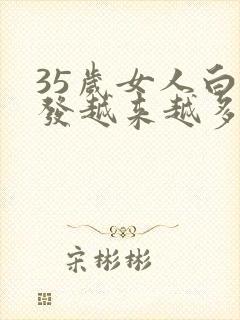 35歲女人白
發越來越多
宋彬彬